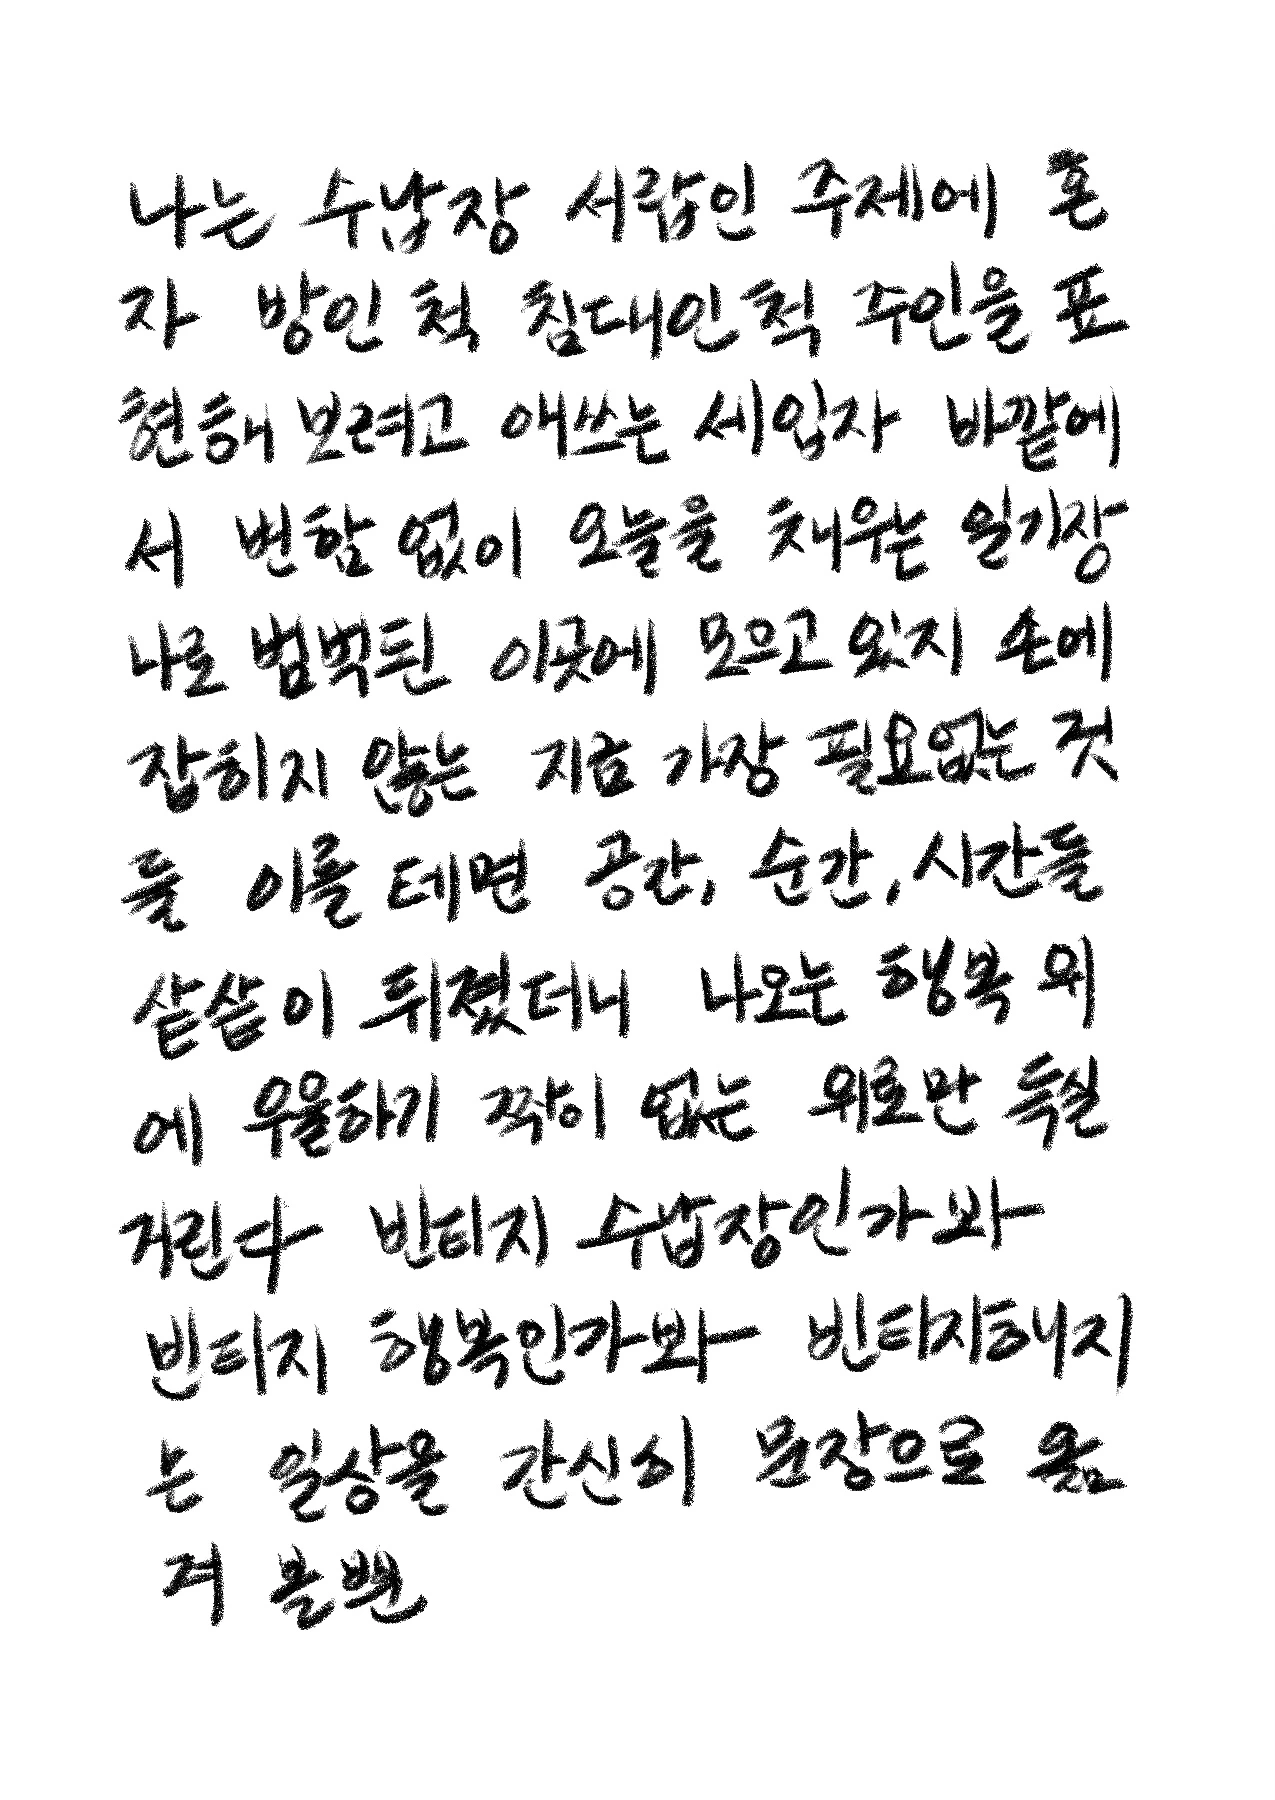 나는 수납장 서랍인 주제에 혼
자 방인 척 침대인 척 주인을 표
현해 보려고 애쓰는 세입자 바깥에
서 변함 없이 오늘을 채우는 일기장
나로 범벅된 이곳에 모으고 있지 손에
잡히지 않는 지금 가장 필요없는 것
들 이를 테면 공간, 순간, 시간들
샅샅이 뒤졌더니 나오는 행복 위
에 우울하기 짝이 없는 위로만 득실
거린다 빈티지 수납장인가봐
빈티지 행복인가봐 빈티지해지
는 일상을 간신히 문장으로 옮
겨 볼 뿐